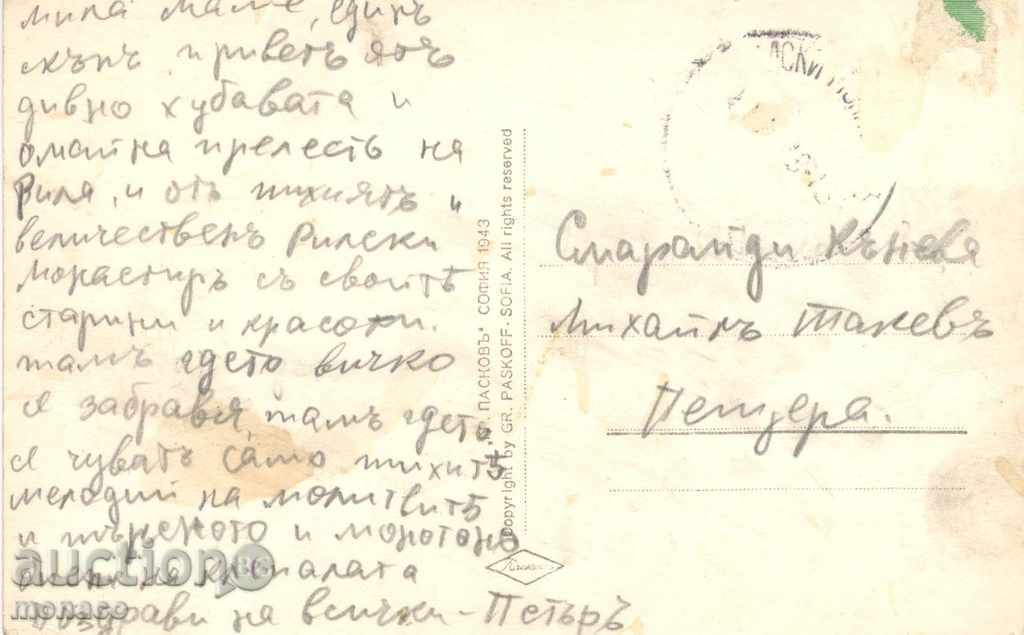 мила маме, единъ
скъпъ приветъ отъ
дивно хубавата и
омайна прелесть на
Рила, и отъ тихиятъ и
величественъ Рилски
монастиръ съ своитѣ
старини и красоти.
тамъ гдето вичко
се забравя, тамъ гдето
се чуватъ само тихитѣ
мелодии на молитвитѣ
и мърното и монотоно
на
Поздрави на всички - Петъръ
"ГР. ПАСКОВЪ" СОФИЯ 1943
Copyright by GR. PASKOFF. SOFIA. All rights reserved
Пасковъ
Смарайди Кънева
Михаилъ Такевъ
Пещера.
auction
monaro